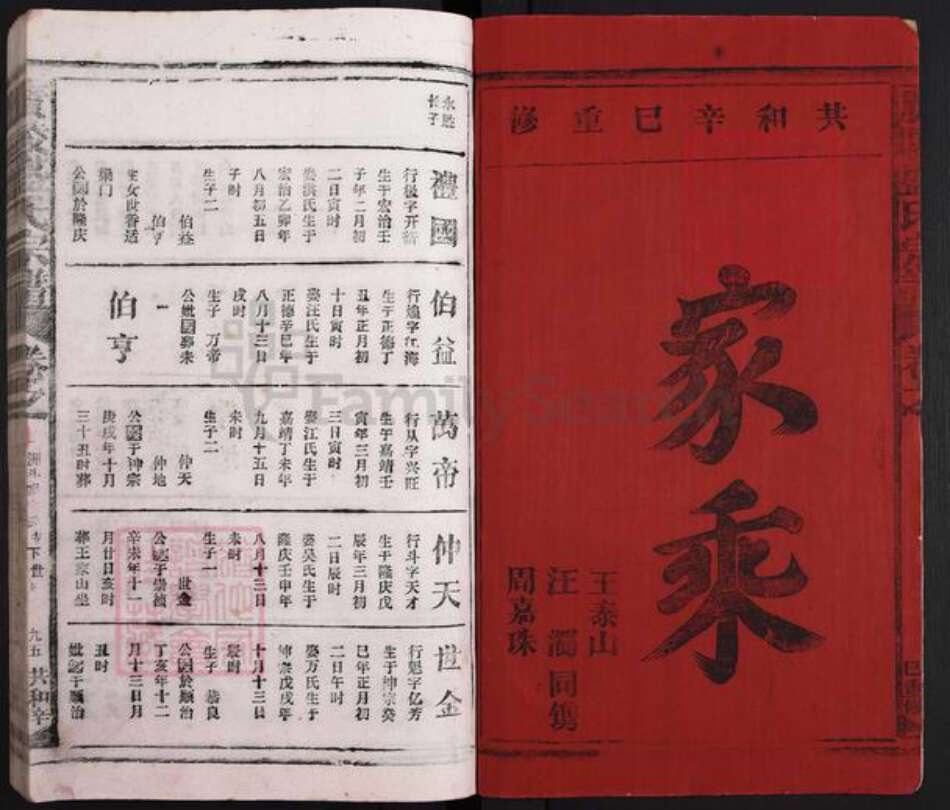 共和辛巳重修
家乘
王泰山
汪 同鐫
周嘉珠
永
长子
禮國
行 字开
生于宏治壬
子年二月初
二日寅时
娶洪氏生于
宏治乙卯年
八月初五日
子时
生子二
伯益
伯亨
生女 适
门
公 於隆庆
伯益
行 字江海
生于正德丁
丑年正月初
十日寅时
娶汪氏生于
正德辛巳年
八月十三日
戌时
生子 万帝
公妣 葬未
一
伯亨
萬帝
行从字兴旺
生于嘉靖壬
寅年三月初
三日寅时
娶江氏生于
嘉靖丁未年
九月十五日
未时
生子二
仲天
仲地
公 于神宗
庚戌年十月
三十丑时葬
仲天
行斗字天才
生于隆庆戊
辰年三月初
二日辰时
娶吴氏生于
隆庆壬申年
八月十三日
未时
生子一
世金
公 于崇祯
辛未年十一
月廿日亥时
葬王家山坐
世金
行魁字亿芳
生于神宗癸
巳年正月初
二日午时
娶万氏生于
神宗戊戌年
十月十三日
辰时
生子 良
公 於顺治
丁亥年十二
月十三日
丑时
妣 于顺治
氏宗譜
下世
九五
共和辛
FamilySearch